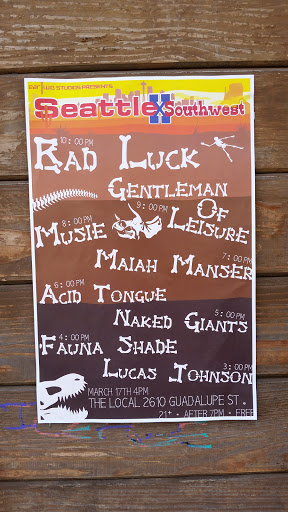 EARTWIG STUDIOS PRESENTS
Seattle X Southwest
10:00 PM
Bad Luck
Gentleman
9:00 PM
Of
8:00 PM
Musie
Leisure
7:00 PM
Maiah Manser
6:00 PM
Acid Tongue
5:00 PM
Naked Giants
4:00 PM
Fauna Shade
3:00 PM
Lucas Johnson
MARCH 17TH 4PM
THE LOCAL 2610 GUADALUPE ST.
21+ • AFTER 7PM • FREE